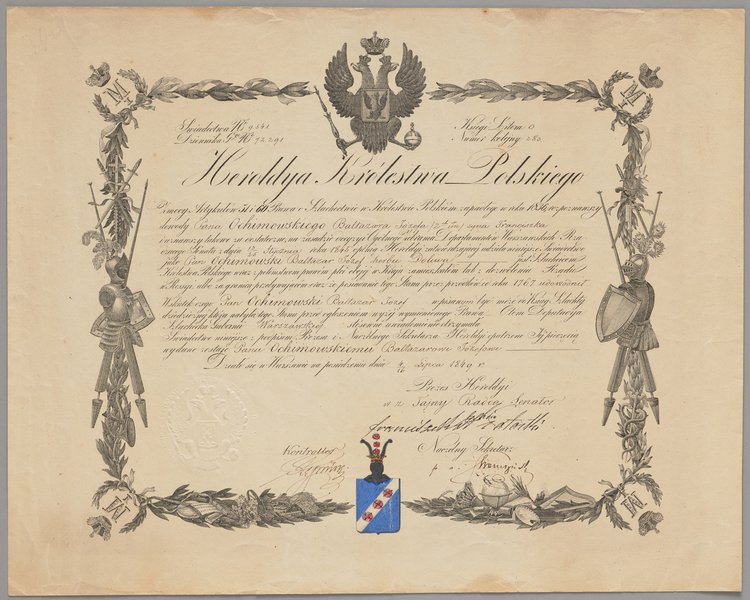 M M
Świadectwo № 9541
Dziennika № 72291
Księgi Litera O
Numer kolejny 283
Heroldya Królestwa Polskiego
Z mocy Artykułów 51 i 60 Prawa o Szlachectwie w Królestwie Polskiem zapadłego w roku 1836, rozpoznawszy
dowody Pana Ochimowskiego Baltazara Józefa syna Franciszka
i uznawszy takowe za dostateczne, na zasadzie decyzyi Ogólnego Zebrania Departamentów Warszawskich Rzą-
dzącego Senatu z dnia Stycznia roku opinię Heroldyi zatwierdzającej, udziela niniejsze Świadectwo,
jako Pan Ochimowski Baltazar Józef herbu Doliwa jest Szlachcicem
Królestwa Polskiego wraz z potomstwem prawem płci obojej w Kraju zamieszkałem lub z dozwolenia Rządu
w Rossyi, albo za granicą przebywającem oraz, że posiadanie tego Stanu przez przodków od roku 1763 udowodnił
W skutek czego Pan Ochimowski Baltazar Józef wpisanym być może do Księgi Szlachty
dziedzicznej, którą nabyła tego Stanu przed ogłoszeniem wyżej wymienionego Prawa. O tem Deputacya
Szlachecka Gubernii Warszawskiej stosowne uwiadomienie otrzymała
Świadectwo niniejsze z podpisem Prezesa i Naczelnego Sekretarza Heroldyi opatrzone Jej pieczęcią
wydane zostaje Panu Ochimowskiemu Baltazarowi Józefowi
Działo się w Warszawie na posiedzeniu dnia Lipca 1849 r
Prezes Heroldyi
w z Tajny Radca Senator
Kontrollor
Naczelny Sekretarz
M M